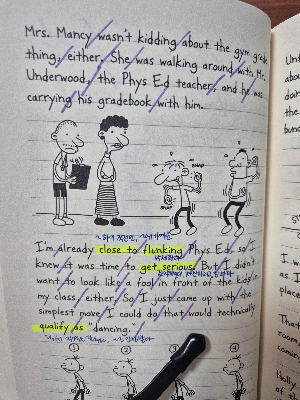 Mrs. Mancy wasn't kidding about the gym grade
thing, either. She was walking around with Mr.
Underwood, the Phys Ed teacher, and he was
carrying his gradebook with him.
SNAP
SNAP
I'm already close to flunking Phys Ed, so I
knew it was time to get serious. But I didn't
want to look like a fool in front of the kids in
my class either. So I just came up with the
simplest move I could do that would technically
qualify as "dancing."
① ② ③ ④